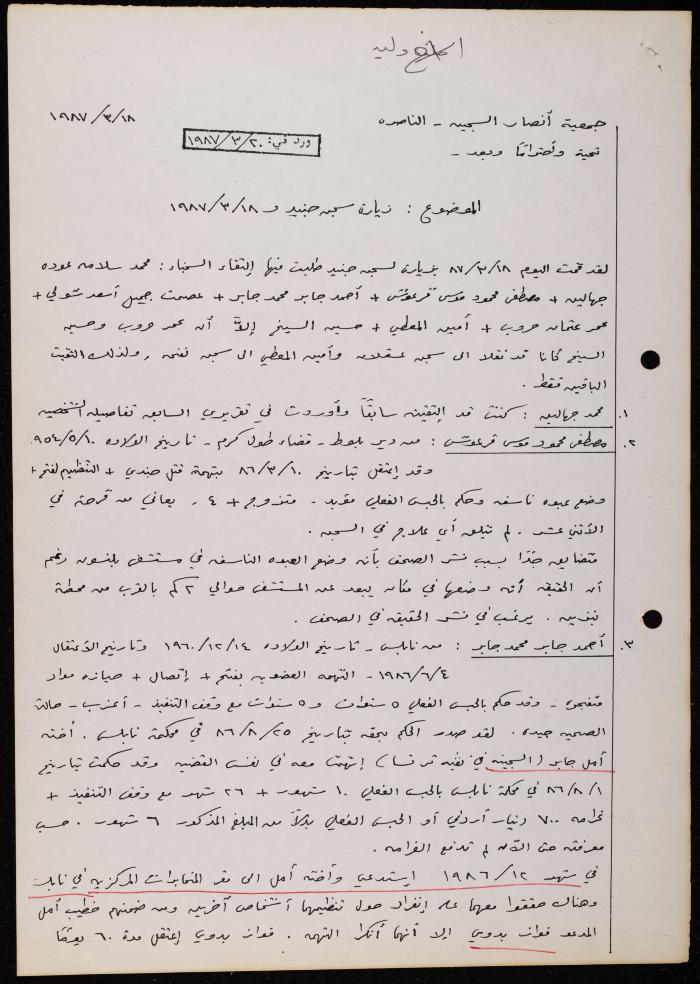 وليد
جمعية أنصار السجين - الناصره
١٩٨٧/٣/١٨
تحية واحترامًا وبعد -
ورد في: ١٩٨٧/٣/٢٠
الموضوع : زيارة سجن جنيد و ١٩٨٧/٣/١٨
لقد قمت اليوم ٨٧/٣/١٨ بزيارة لسجن جنيد طلبت فيها إلتقاء السجناء : محمد سلامه عوده
جهالين + مصطفى محمود موسى قرعوش + أحمد جابر محمد جابر + عصمت جميل أسعد شولي +
عمر عثمان حروب + أمين المعطي + حسين السيخ إلاّ أن عمر حروب وحسين
السيخ كانا قد نقلا الى سجن عسقلان وأمين المعطي الى سجن نفحه , ولذلك التقيت
الباقين فقط .
١. محمد جهالين : كنت قد إلتقيته سابقًا وأوردت في تقريري السابق تفاصيله الشخصيه
٢. مصطفى محمود موسى قرعوش : من دير بلوط - قضاء طولكرم - تاريخ الولاده ٩٥٤/٥/١٠
وقد إعتقل بتاريخ ٨٦/٣/١٠ بتهمة قتل جندي + التنظيم لفتح +
وضع عبوه ناسفه وحكم بالحبس الفعلي مؤبد - متزوج + ٤ , يعاني من قرحة في
الأثني عشر - لم يتلق أي علاج في السجن .
متضايق جدًا بسبب نشر الصحف بأن وضع العبوه الناسفه في مستشفى بلنسون رغم
أن الحقيقه أنه وضعها في مكان يبعد عن المستشفى حوالي ٢ كم بالقرب من محطة
بنزين . يرغب في نشر الحقيقه في الصحف .
٣. أحمد جابر محمد جابر : من نابلس - تاريخ الولاده ١٩٦٠/١٢/١٤ وتاريخ الأعتقال
١٩٨٦/٦/٤ - التهمه العضويه بفتح + إتصال + حيازه مواد
متفجره - وقد حكم بالحبس الفعلي ٥ سنوات و ٥ سنوات مع وقف التنفيذ - أعزب - حالته
الصحيه جيده . لقد صدر الحكم بحقه بتاريخ ٨٦/٨/٢٥ في محكمة نابلس . أخته
أمل جابر ( السجينه في نفيه ترتسا ) إتهمت معه في نفس القضيه وقد حكمت بتاريخ
٨٦/٨/١ في محكمة نابلس بالحبس الفعلي ١٠ شهور + ٢٦ شهر مع وقف التنفيذ +
غرامه ٧٠٠ دينار أردني أو الحبس الفعلي بدلاً من المبلغ المذكور ٦ شهور . حسب
معرفته حتى الآن لم تدفع الغرامه .
في شهر ١٩٨٦/١٢ إستدعي وأخته أمل الى مقر المخابرات المركزيه في نابلس
وهناك حققوا معهما على إنفراد حول تنظيمهما أشخاص آخرين ومن ضمنهم خطيب أمل
المدعو فواز بدوي إلا أنهما أنكرا التهمه . فواز بدوي إعتقل مدة ٦٠ يومًا